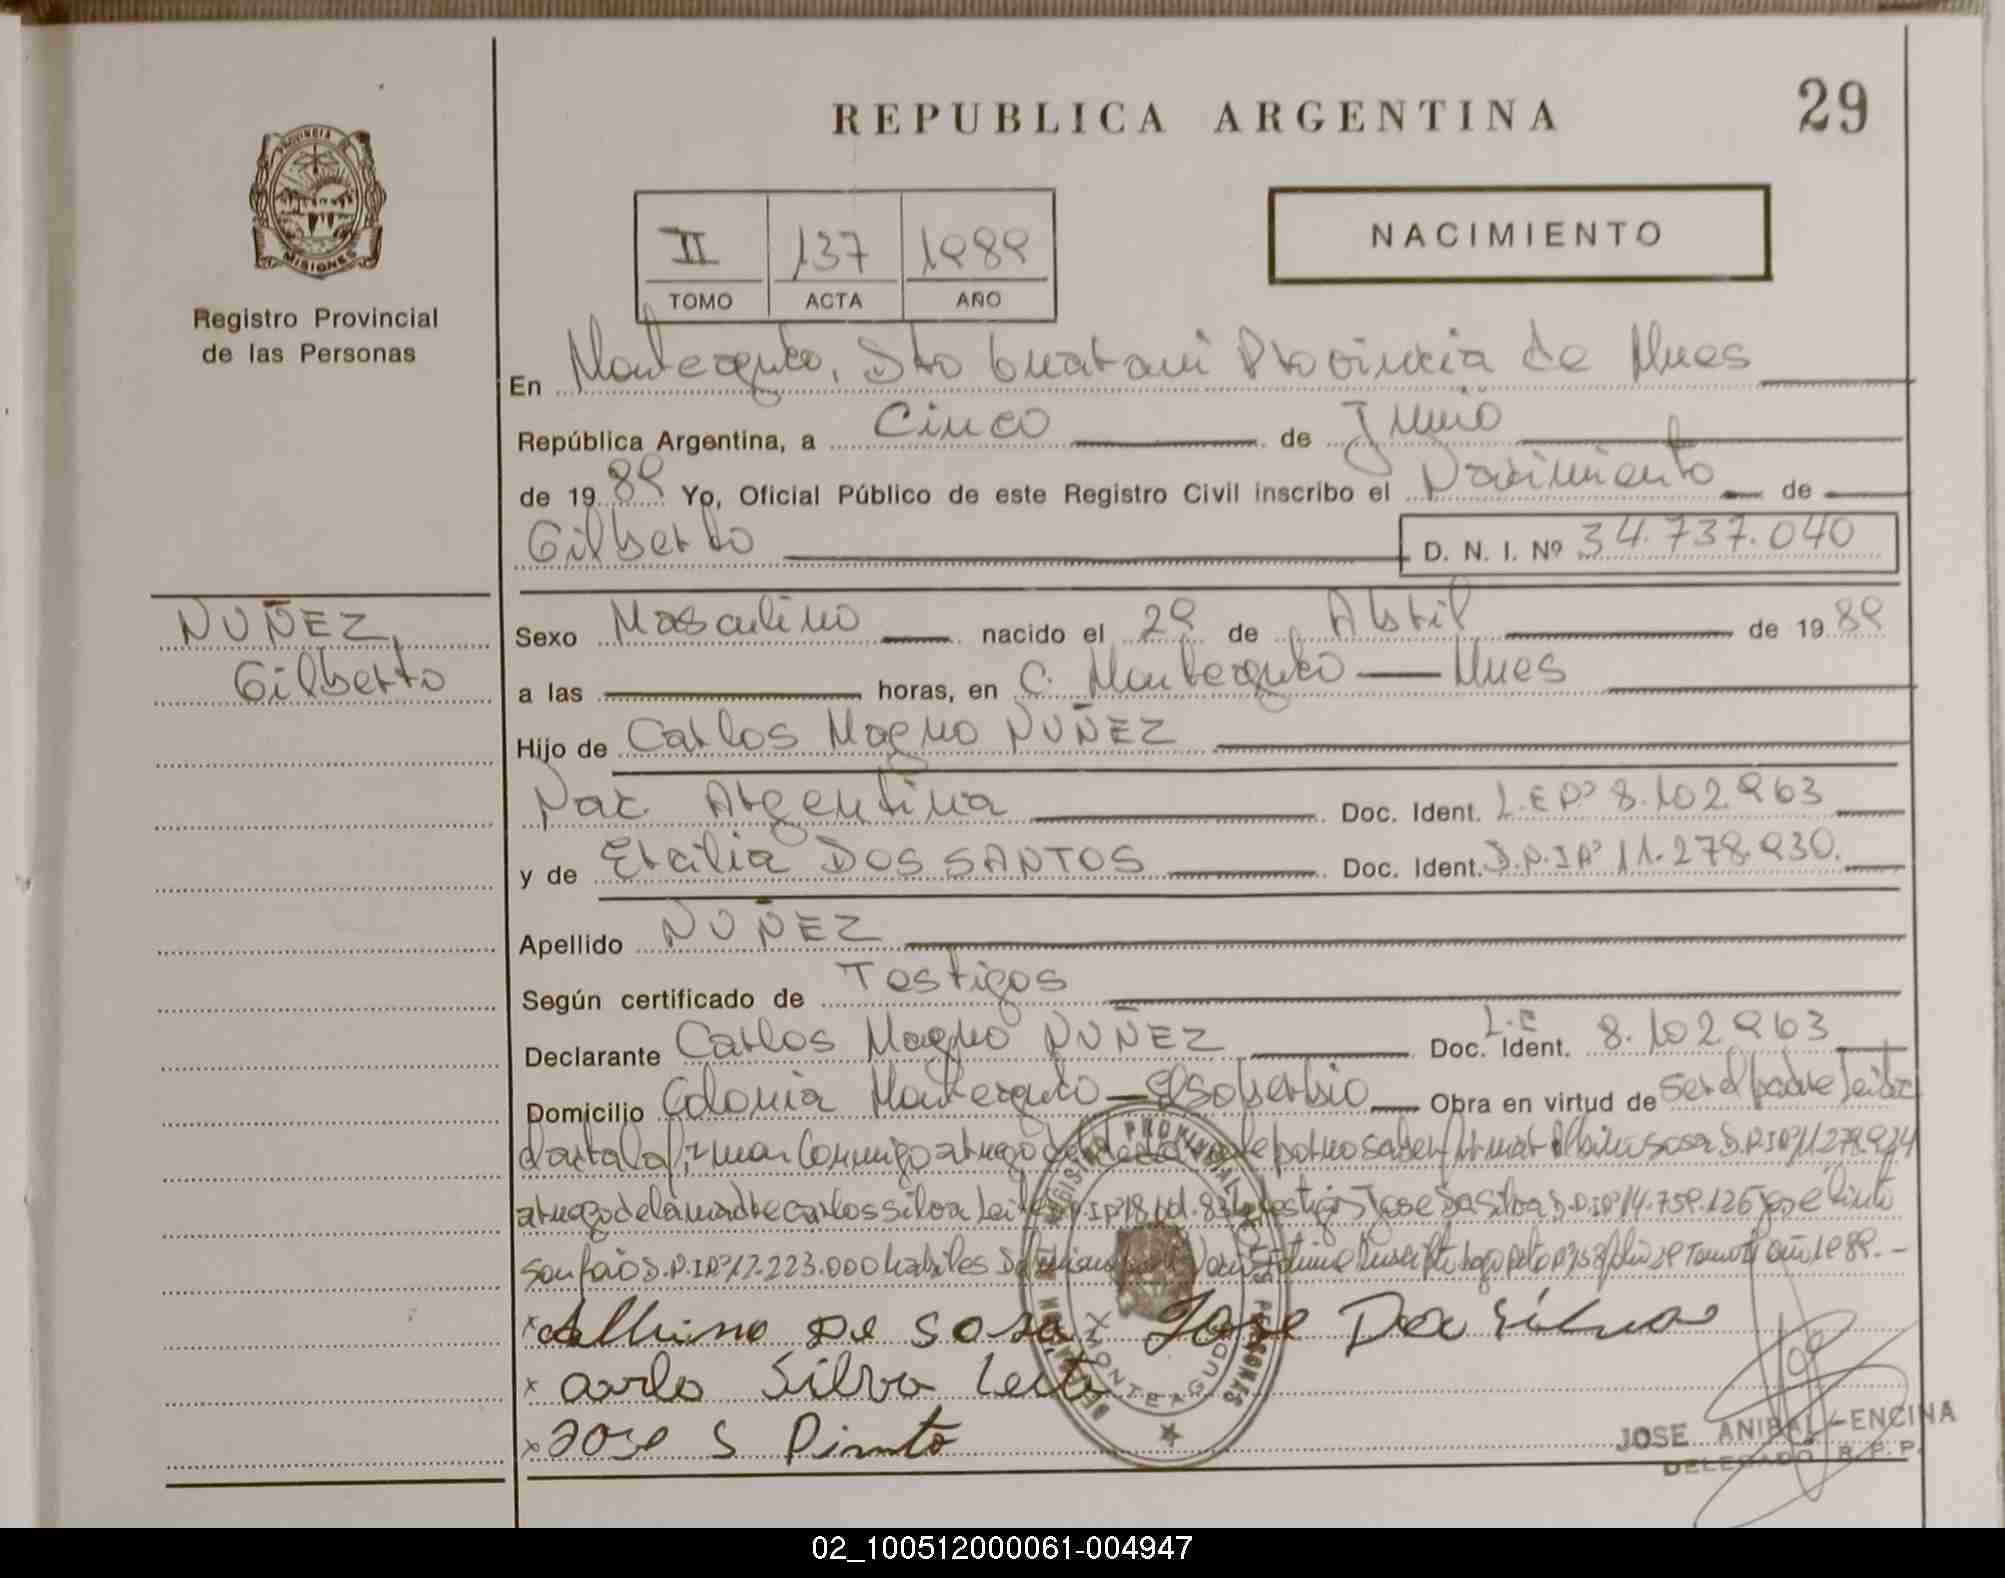 REPUBLICA ARGENTINA
29
PROVINCIA DE
MISIONES
Registro Provincial
de las Personas
II 137 1989
TOMO ACTA AÑO
NACIMIENTO
En Monteagudo, Dto Guaraní Provincia de Mnes
República Argentina, a Cinco de Junio
de 1989 Yo, Oficial Público de este Registro Civil inscribo el Nacimiento de
Gilberto D. N. I. Nº 34.737.040
NUÑEZ,
Gilberto
Sexo Masculino nacido el 29 de Abril de 1989
a las horas, en C. Monteagudo — Mnes
Hijo de Carlos Magno NUÑEZ
Nac. Argentina Doc. Ident. L.E Nº 8.102.963
y de Ercilia DOS SANTOS Doc. Ident. D.N.I Nº 11.278.930.
Apellido NUÑEZ
Según certificado de Testigos
Declarante Carlos Magno NUÑEZ Doc. Ident. L.E 8.102.963
Domicilio Colonia Monteagudo — El Soberbio Obra en virtud de ser el padre Leida
el acta la firman conmigo a ruego del declarante por no saber firmar Albino Sosa D.N.I Nº 11.278.924
a ruego de la madre Carlos Silva Leite D.N.I Nº 18. testigos Jose Da Silva D.N.I Nº 14.759.126 Jose Pinto
D.N.I Nº 17.223.000 habiles Tomo II año 1989. —
x Albino De Sosa Jose Da Silva
x Carlo Silva Leite
x Jose S Pinto
REGISTRO PROVINCIAL DE LAS PERSONAS
MONTEAGUDO
JOSE ANIBAL ENCINA
DELEGADO R. P. P.
02_100512000061-004947